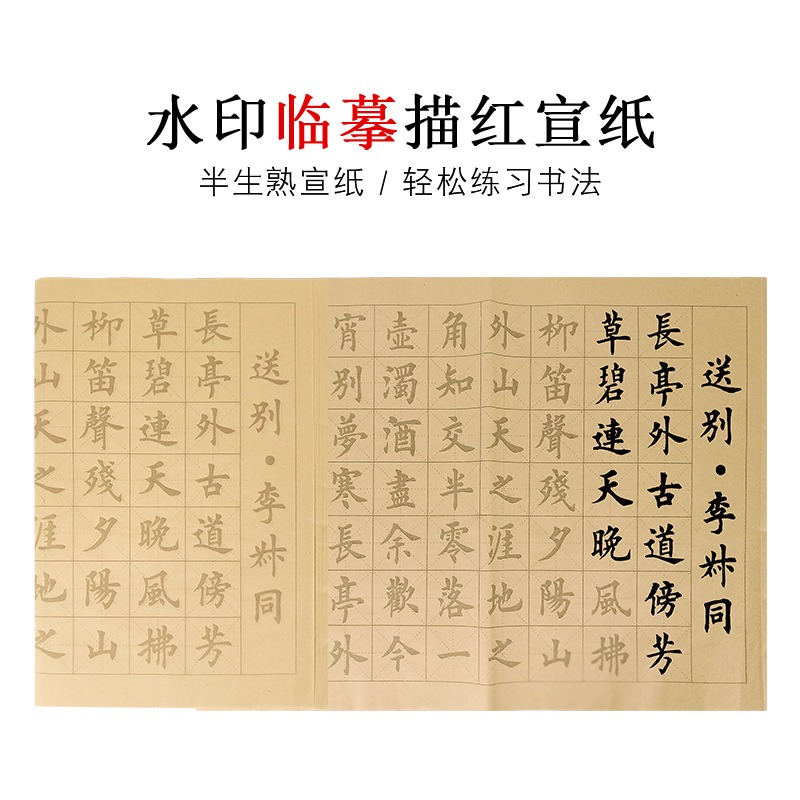 水印临摹描红宣纸
半生熟宣纸 / 轻松练习书法
送别·李叔同
長亭外古道傍芳
草碧連天晚風拂
柳笛聲殘夕陽山
外山天之涯地之
角知交半零落一
壺濁酒盡余歡今
宵别夢寒長亭外
送别·李叔同
長亭外古道傍芳
草碧連天晚風拂
柳笛聲殘夕陽山
外山天之涯地之